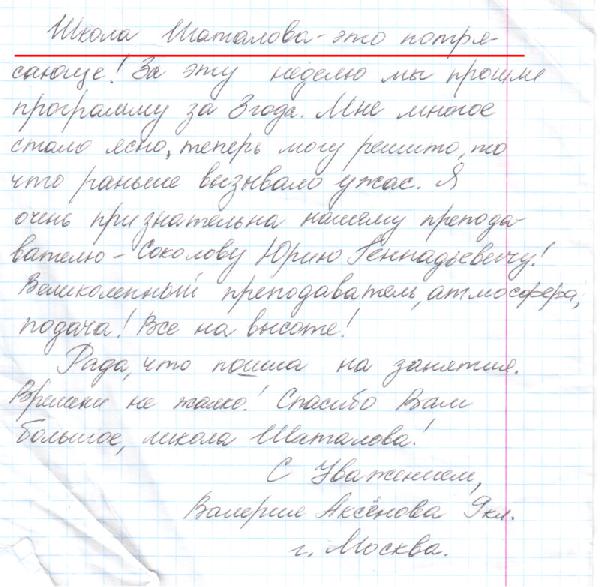 Школа Шаталова - это потря-
сающе! За эту неделю мы прошли
программу за 3 года. Мне многое
стало ясно, теперь могу решить, то
что раньше вызывало ужас. Я
очень признательна нашему препода-
вателю - Соколову Юрию Геннадьевичу!
Великолепный преподаватель, атмосфера,
подача! Все на высоте!
Рада, что пошла на занятия.
Времени не жалко! Спасибо Вам
большое, школа Шаталова!
С Уважением,
Валерия Аксёнова 9 кл.
г. Москва.